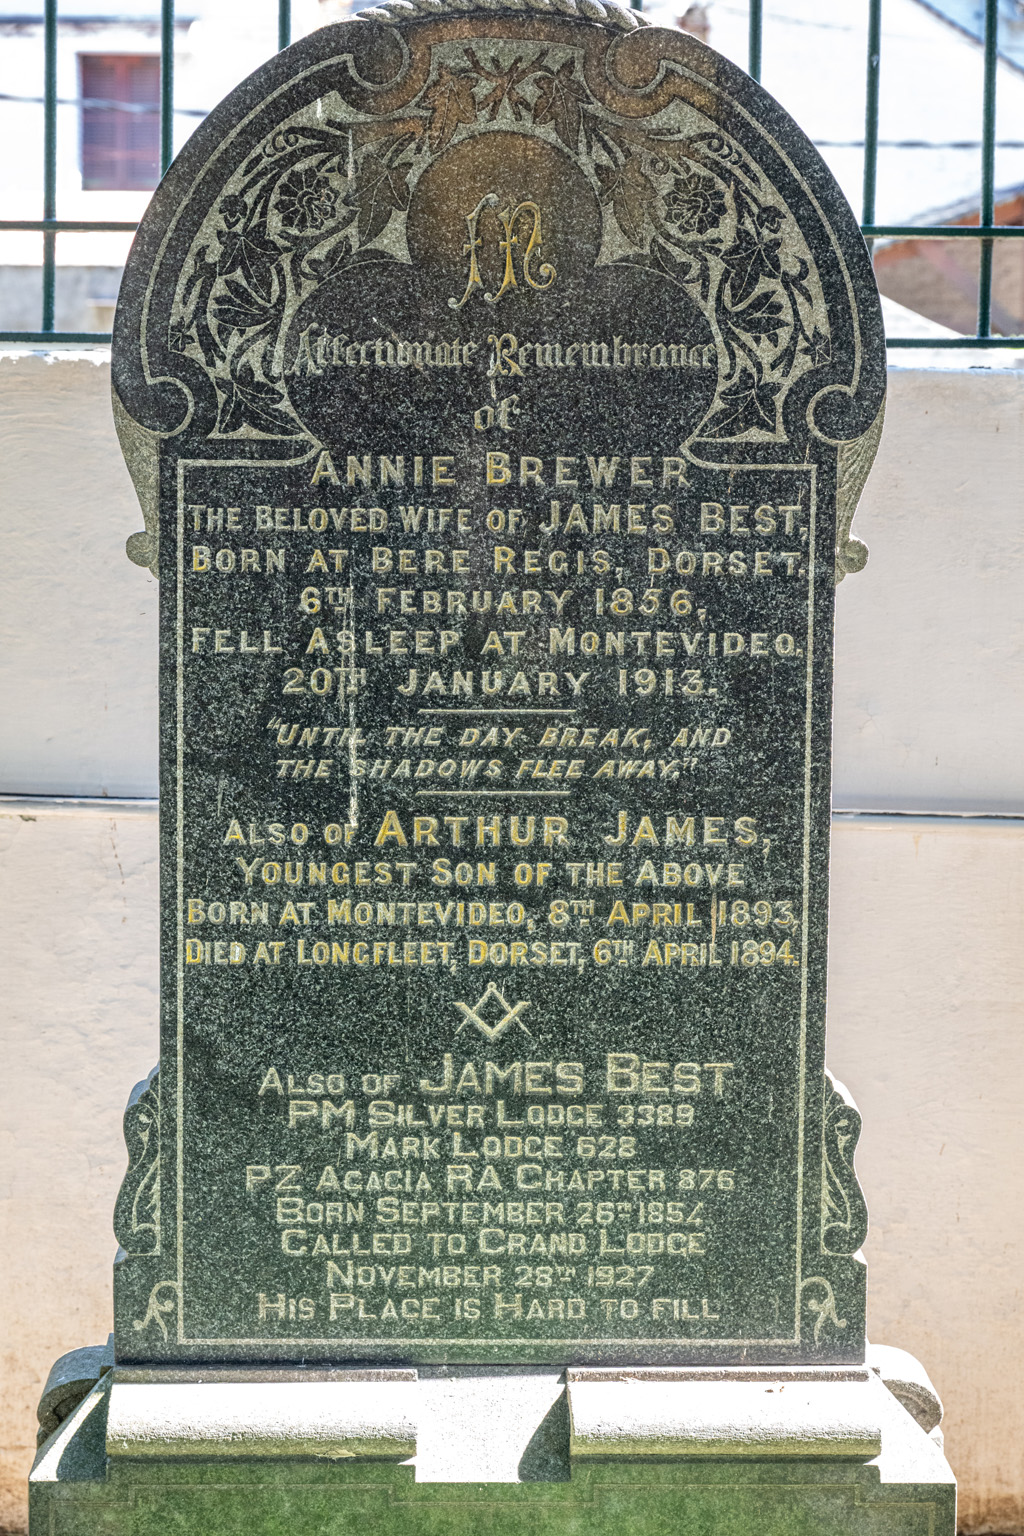 In
Affectionate Remembrance
of
ANNIE BREWER
THE BELOVED WIFE OF JAMES BEST,
BORN AT BERE REGIS, DORSET.
6TH FEBRUARY 1856,
FELL ASLEEP AT MONTEVIDEO.
20TH JANUARY 1913.
"UNTIL THE DAY BREAK, AND
THE SHADOWS FLEE AWAY."
ALSO OF ARTHUR JAMES,
YOUNGEST SON OF THE ABOVE
BORN AT MONTEVIDEO, 8TH APRIL 1893,
DIED AT LONGFLEET, DORSET, 6TH APRIL 1894.
ALSO OF JAMES BEST
PM SILVER LODGE 3389
MARK LODGE 628
PZ ACACIA RA CHAPTER 876
BORN SEPTEMBER 26TH
CALLED TO GRAND LODGE
NOVEMBER 28TH 1927
HIS PLACE IS HARD TO FILL